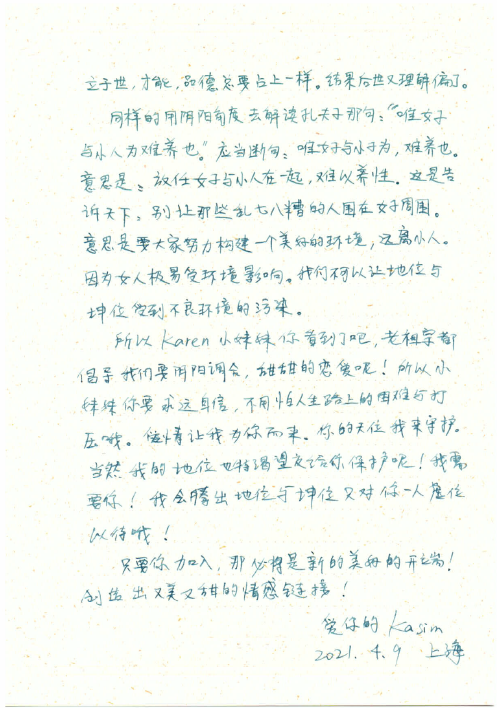 立于世，才能，品德总要占上一样。结果后世又理解偏了。
同样的用阴阳角度去解读孔夫子那句：“唯女子
与小人为难养也。”应当断句：唯女子与小子为，难养也。
意思是：放任女子与小人在一起，难以养性。这是告
诉天下：别让那些乱七八糟的人围在女子周围。
意思是要大家努力构建一个美好的环境，远离小人。
因为女人极易受环境影响。我们不可以让地位与
坤位受到不良环境的污染。
所以 Karen 小妹妹你看到了吧，老祖宗都
倡导我们要阴阳调合，甜甜的恋爱呢！所以小
妹妹你要永远自信，不用怕人生路上的困难与打
压哦。爱情让我为你而来。你的天位我来守护。
当然我的地位也特渴望交给你保护呢！我需
要你！我会腾出地位与坤位只对你一人虚位
以待哦！
只要你加入，那必将是新的美好的开端！
创造出又美又甜的情感链接！
爱你的 Kasim
2021. 4. 9 上海